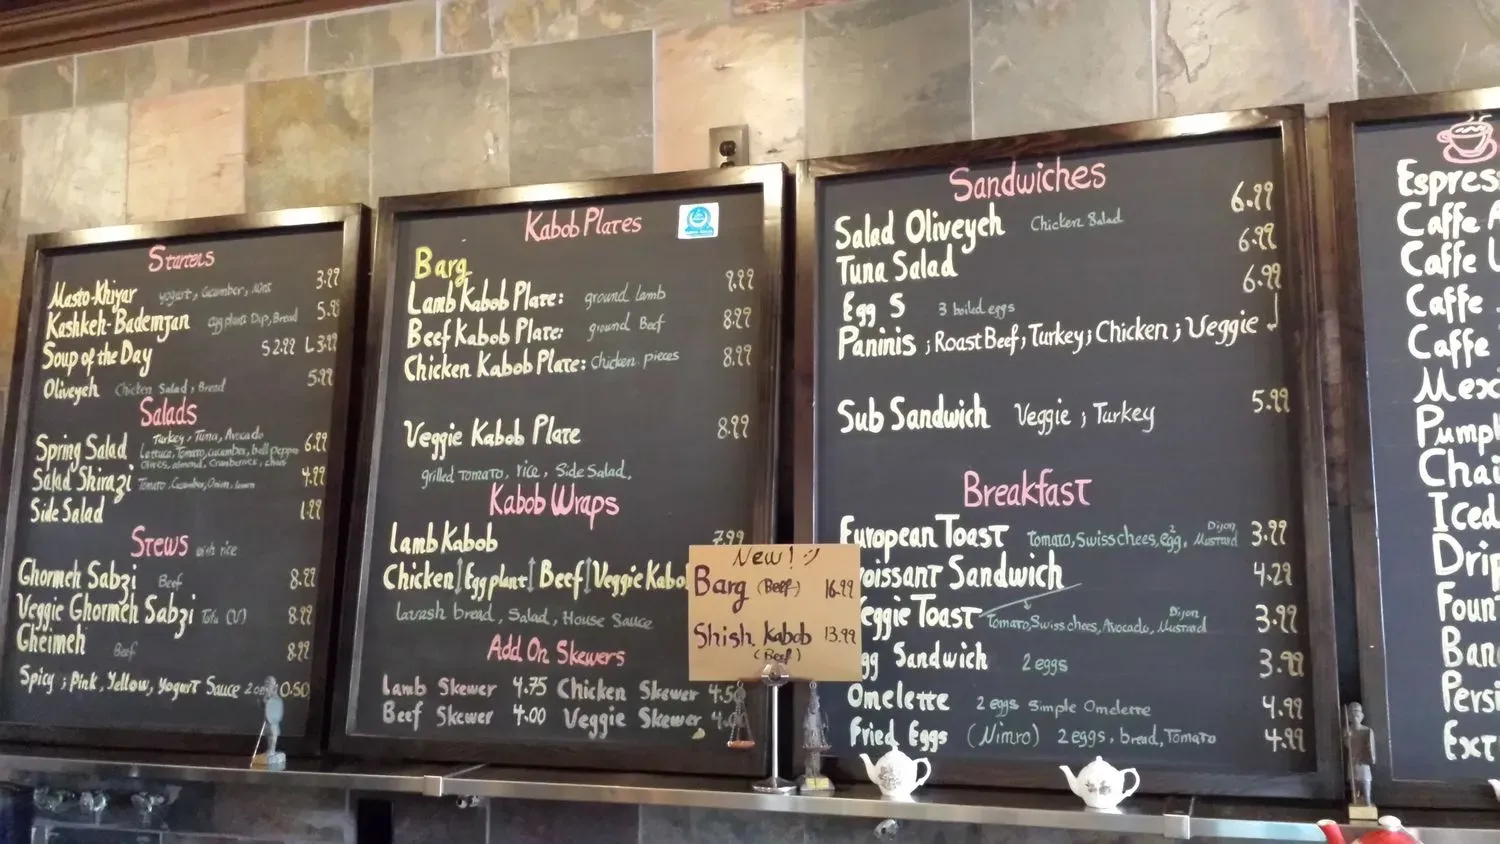 Starters
Masto-Khiyar yogurt, Cucumber, Mint 3.99
Kashkeh-Bademjan eggplant Dip, Bread 5.99
Soup of the Day S 2.99 L 3.99
Oliveyeh Chicken Salad, Bread 5.99
Salads
Turkey, Tuna, Avocado
Spring Salad Lettuce, Tomato, cucumber, bell pepper 6.99
Olives, almond, Cranberries,
Salad Shirazi Tomato, Cucumber, Onion, 4.99
Side Salad 1.99
Stews with rice
Ghormeh Sabzi Beef 8.99
Veggie Ghormeh Sabzi Tofu (V) 8.99
Gheimeh Beef 8.99
Spicy ; Pink, Yellow, Yogurt Sauce 2oz 0.50
Kabob Plates
Barg
Lamb Kabob Plate: ground lamb 9.99
Beef Kabob Plate: ground Beef 8.99
Chicken Kabob Plate: Chicken pieces 8.99
Veggie Kabob Plate 8.99
grilled Tomato, rice, Side Salad,
Kabob Wraps
Lamb Kabob 7.99
Chicken Eggplant Beef Veggie Kabo
Lavash bread, Salad, House Sauce
Add On Skewers
Lamb Skewer 4.75 Chicken Skewer 4.50
Beef Skewer 4.00 Veggie Skewer
New! :)
Barg (Beef) 16.99
Shish Kabob 13.99
(Beef)
Sandwiches
Salad Oliveyeh Chicken Salad 6.99
Tuna Salad 6.99
Egg S 3 boiled eggs 6.99
Paninis ; Roast Beef; Turkey; Chicken ; Veggie
Sub Sandwich Veggie ; Turkey 5.99
Breakfast
European Toast Tomato, Swiss chees, 2 egg, Dijon Mustard 3.99
roissant Sandwich 4.29
eggie Toast Tomato, Swiss chees, Avocado, Dijon Mustard 3.99
gg Sandwich 2 eggs 3.99
Omelette 2 eggs Simple Omelette 4.99
Fried Eggs (Nimro) 2 eggs, bread, Tomato 4.99
Espres
Caffe A
Caffe L
Caffe
Caffe
Mex
Pump
Chai
Iced
Drip
Foun
Ban
Persi
Ext